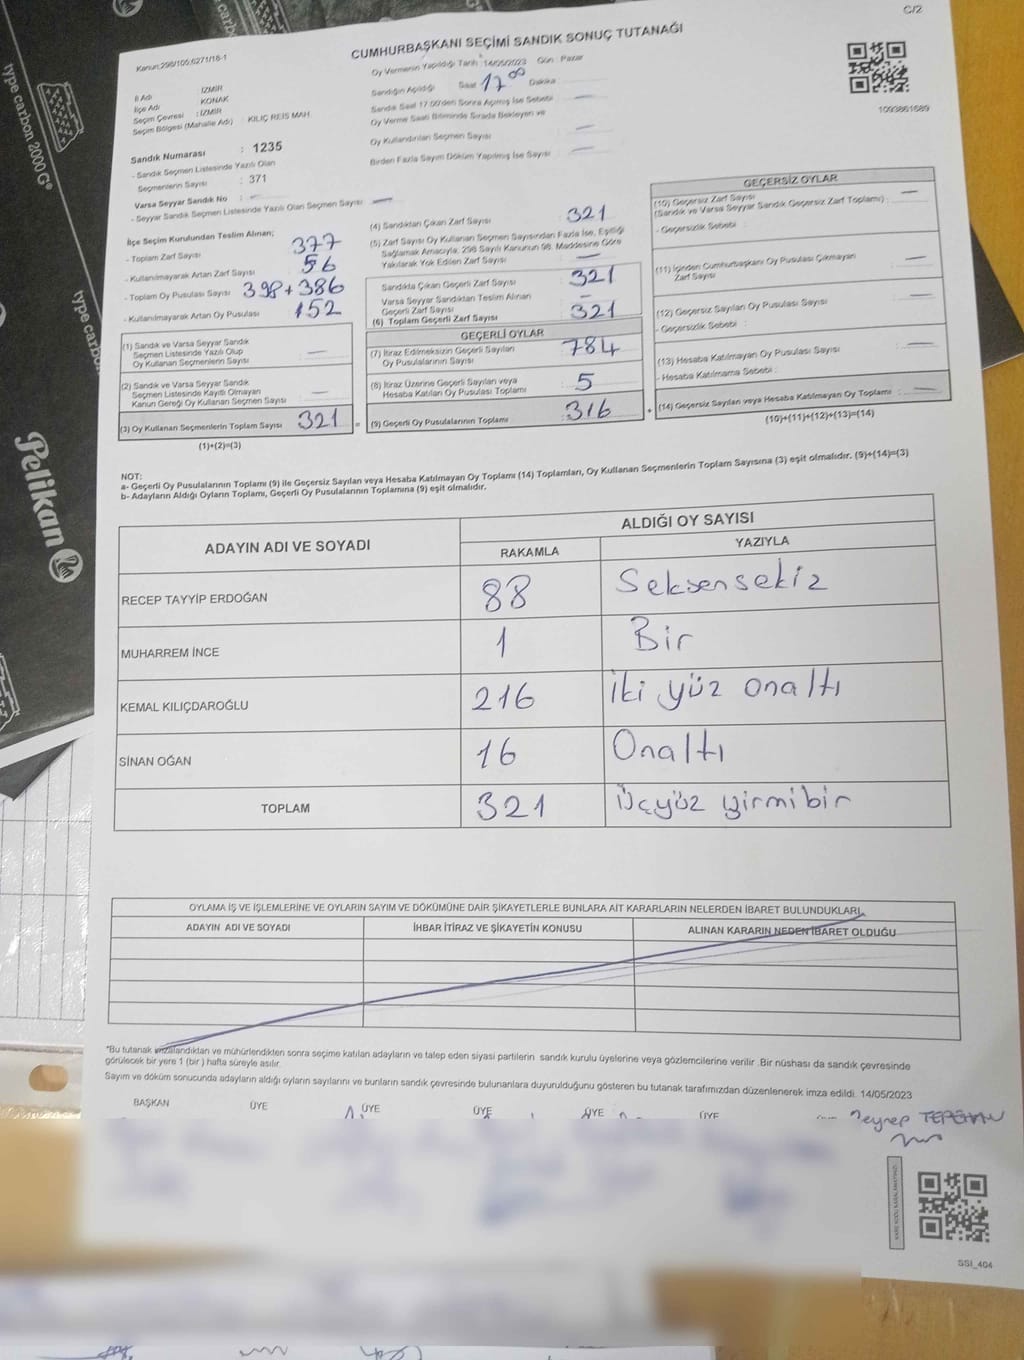 C/2
Kanun:298/105;6271/18-1
CUMHURBAŞKANI SEÇİMİ SANDIK SONUÇ TUTANAĞI
İl Adı : İZMİR
İlçe Adı : KONAK
Seçim Çevresi : İZMİR
Seçim Bölgesi (Mahalle Adı) : KILIÇ REİS MAH.
Oy Vermenin Yapıldığı Tarih :14/05/2023 Gün : Pazar
Sandığın Açıldığı Saat 17 00 Dakika
Sandık Saat 17:00'den Sonra Açılmış İse Sebebi
Oy Verme Saati Bitiminde Sırada Bekleyen ve
Oy Kullandırılan Seçmen Sayısı
Birden Fazla Sayım Döküm Yapılmış İse Sayısı
1093861689
Sandık Numarası : 1235
- Sandık Seçmen Listesinde Yazılı Olan
Seçmenlerin Sayısı : 371
Varsa Seyyar Sandık No :
- Seyyar Sandık Seçmen Listesinde Yazılı Olan Seçmen Sayısı :
İlçe Seçim Kurulundan Teslim Alınan;
- Toplam Zarf Sayısı 377
- Kullanılmayarak Artan Zarf Sayısı 56
- Toplam Oy Pusulası Sayısı 398+386
- Kullanılmayarak Artan Oy Pusulası 152
(1) Sandık ve Varsa Seyyar Sandık
Seçmen Listesinde Yazılı Olup
Oy Kullanan Seçmenlerin Sayısı
(2) Sandık ve Varsa Seyyar Sandık
Seçmen Listesinde Kayıtlı Olmayan
Kanun Gereği Oy Kullanan Seçmen Sayısı
(3) Oy Kullanan Seçmenlerin Toplam Sayısı 321
(1)+(2)=(3)
(4) Sandıktan Çıkan Zarf Sayısı 321
(5) Zarf Sayısı Oy Kullanan Seçmen Sayısından Fazla İse, Eşitliği
Sağlamak Amacıyla; 298 Sayılı Kanunun 98. Maddesine Göre
Yakılarak Yok Edilen Zarf Sayısı
Sandıkta Çıkan Geçerli Zarf Sayısı 321
Varsa Seyyar Sandıktan Teslim Alınan
Geçerli Zarf Sayısı
(6) Toplam Geçerli Zarf Sayısı 321
GEÇERLİ OYLAR
(7) İtiraz Edilmeksizin Geçerli Sayılan
Oy Pusulalarının Sayısı 784
(8) İtiraz Üzerine Geçerli Sayılan veya
Hesaba Katılan Oy Pusulası Toplamı 5
(9) Geçerli Oy Pusulalarının Toplamı 316
GEÇERSİZ OYLAR
(10) Geçersiz Zarf Sayısı
(Sandık ve Varsa Seyyar Sandık Geçersiz Zarf Toplamı) :
- Geçersizlik Sebebi :
(11) İçinden Cumhurbaşkanı Oy Pusulası Çıkmayan
Zarf Sayısı
(12) Geçersiz Sayılan Oy Pusulası Sayısı
- Geçersizlik Sebebi :
(13) Hesaba Katılmayan Oy Pusulası Sayısı
- Hesaba Katılmama Sebebi :
(14) Geçersiz Sayılan veya Hesaba Katılmayan Oy Toplamı
(10)+(11)+(12)+(13)=(14)
NOT:
a- Geçerli Oy Pusulalarının Toplamı (9) ile Geçersiz Sayılan veya Hesaba Katılmayan Oy Toplamı (14) Toplamları, Oy Kullanan Seçmenlerin Toplam Sayısına (3) eşit olmalıdır. (9)+(14)=(3)
b- Adayların Aldığı Oyların Toplamı, Geçerli Oy Pusulalarının Toplamına (9) eşit olmalıdır.
ADAYIN ADI VE SOYADI ALDIĞI OY SAYISI
RAKAMLA YAZIYLA
RECEP TAYYİP ERDOĞAN 88 Seksensekiz
MUHARREM İNCE 1 Bir
KEMAL KILIÇDAROĞLU 216 İki yüz onaltı
SİNAN OĞAN 16 Onaltı
TOPLAM 321 Üçyüz yirmibir
OYLAMA İŞ VE İŞLEMLERİNE VE OYLARIN SAYIM VE DÖKÜMÜNE DAİR ŞİKAYETLERLE BUNLARA AİT KARARLARIN NELERDEN İBARET BULUNDUKLARI
ADAYIN ADI VE SOYADI İHBAR İTİRAZ VE ŞİKAYETİN KONUSU ALINAN KARARIN NEDEN İBARET OLDUĞU
*Bu tutanak imzalandıktan ve mühürlendikten sonra seçime katılan adayların ve talep eden siyasi partilerin sandık kurulu üyelerine veya gözlemcilerine verilir .Bir nüshası da sandık çevresinde
görülecek bir yere 1 (bir ) hafta süreyle asılır.
Sayım ve döküm sonucunda adayların aldığı oyların sayılarını ve bunların sandık çevresinde bulunanlara duyurulduğunu gösteren bu tutanak tarafımızdan düzenlenerek imza edildi. 14/05/2023
BAŞKAN ÜYE ÜYE ÜYE ÜYE ÜYE
Zeynep
SSI_404
type carbon 2000 G
Pelikan